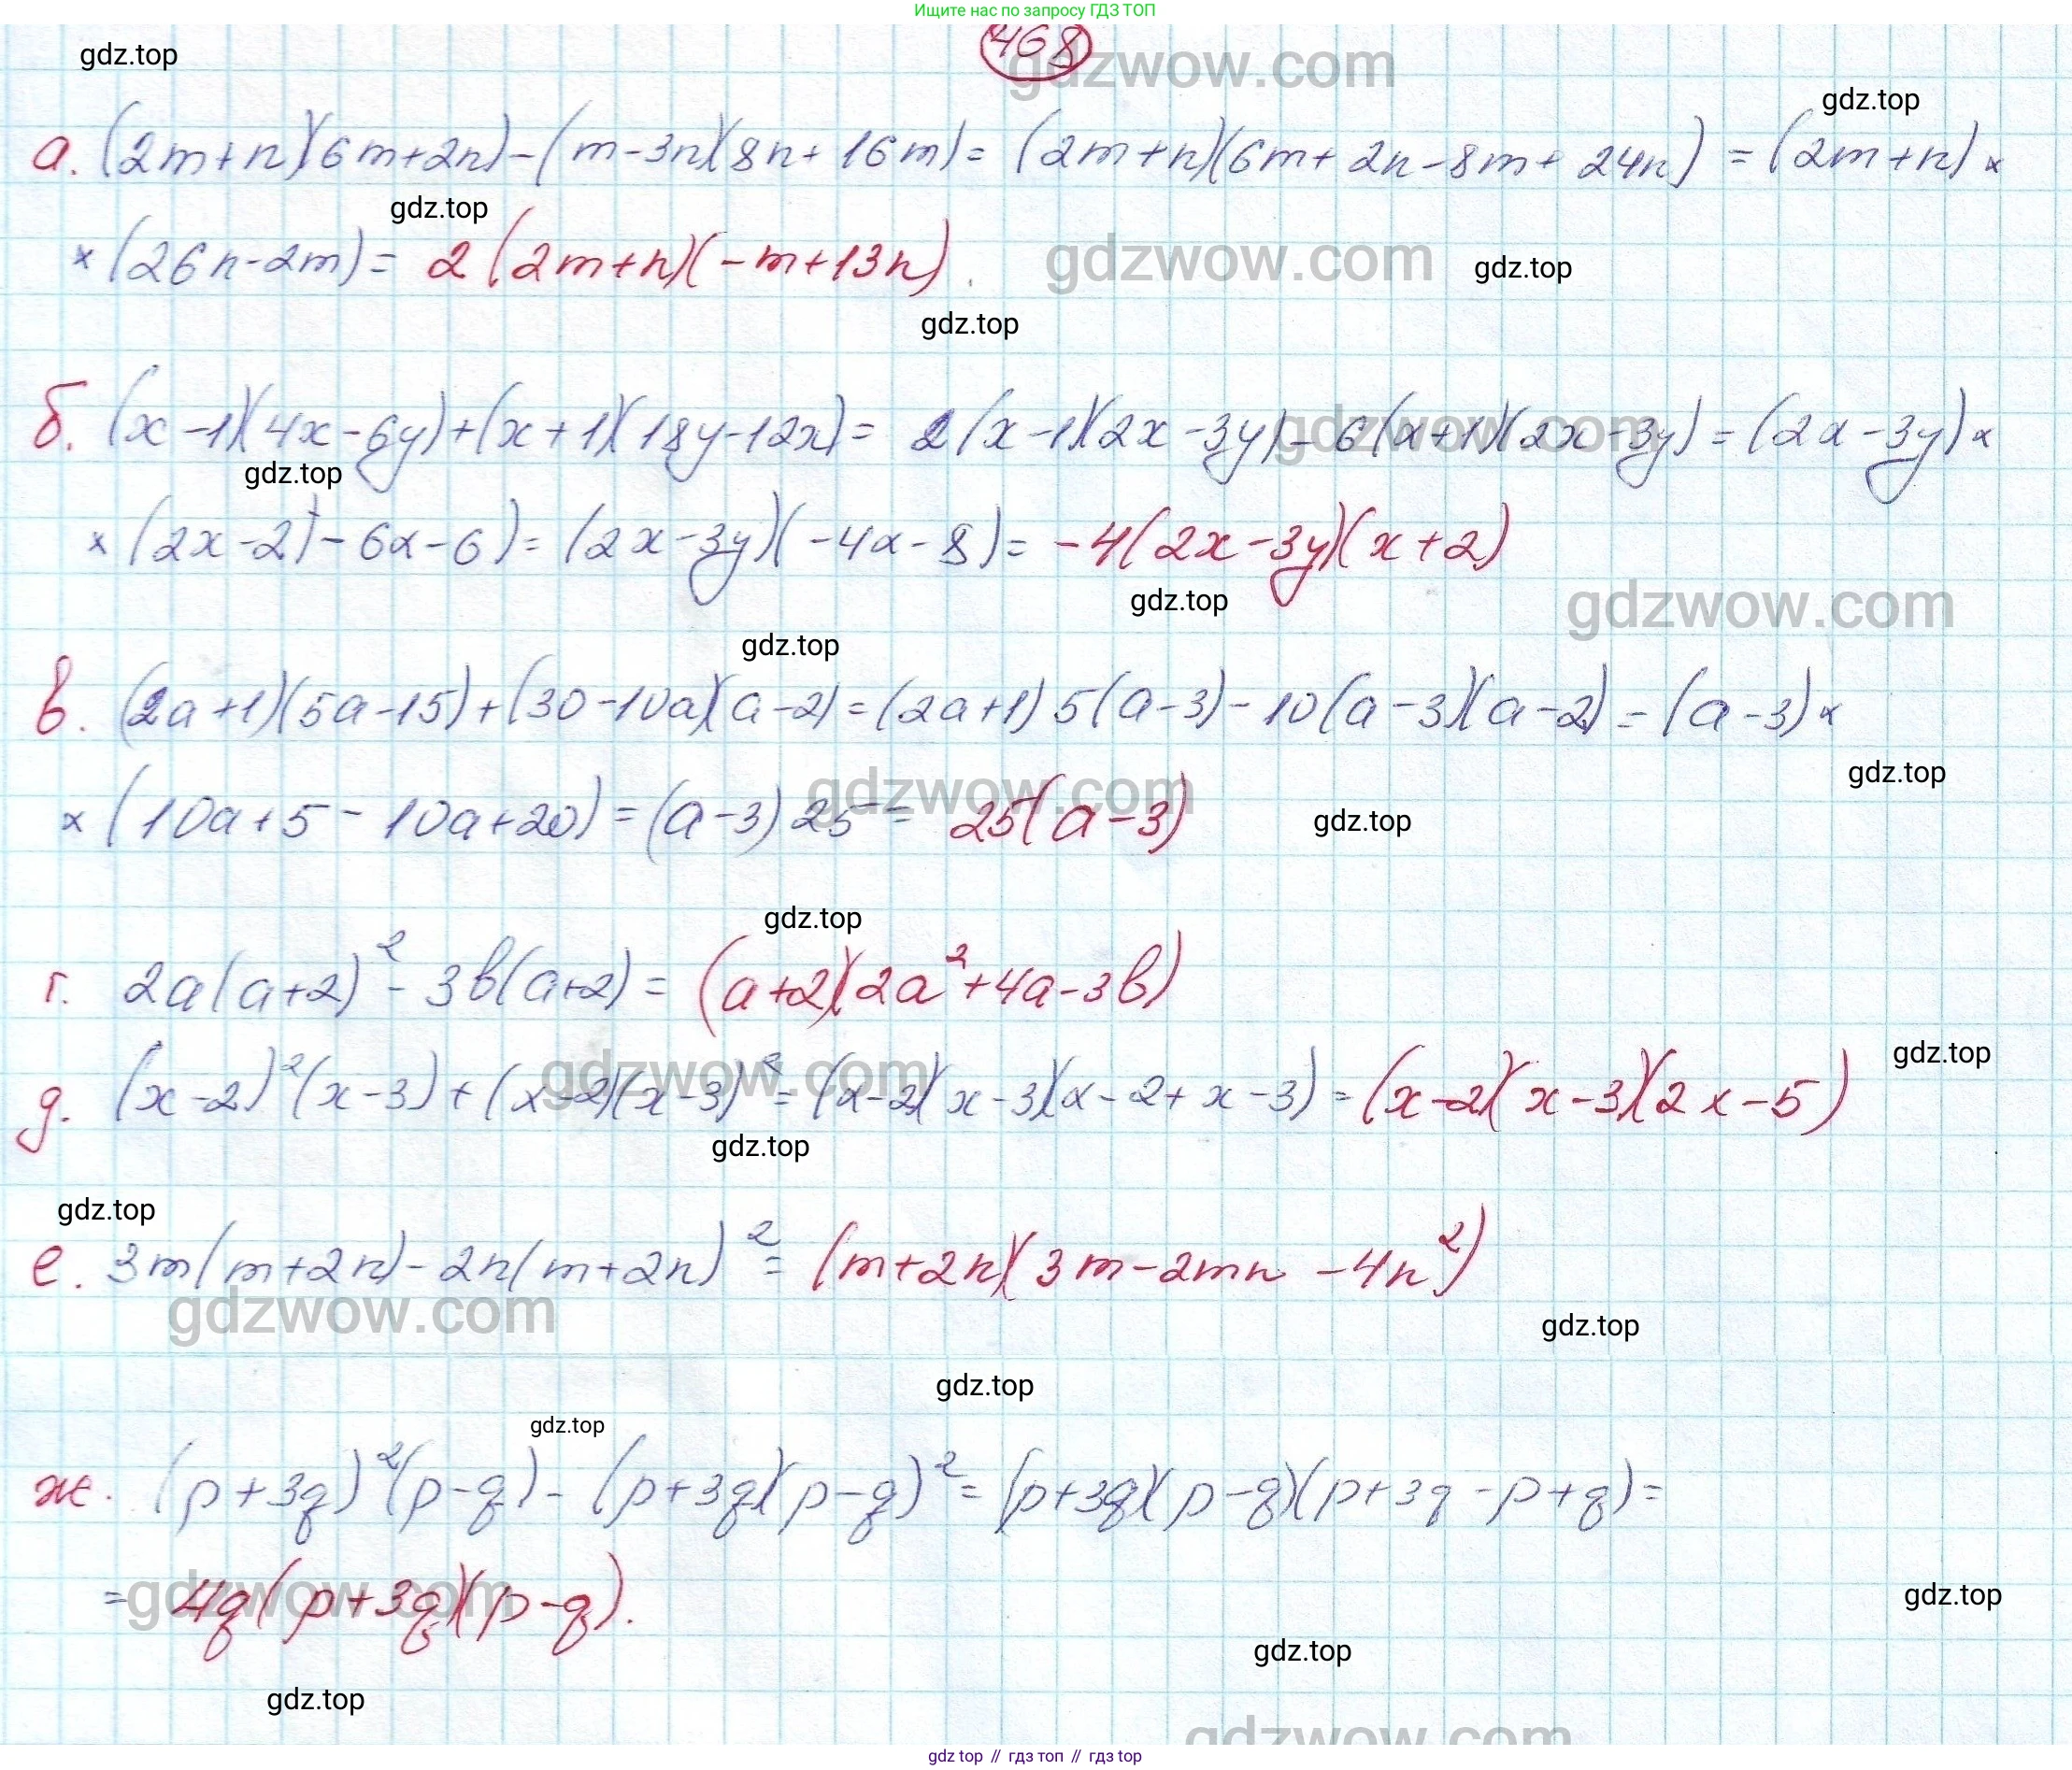 Ищите нас по запросу ГДЗ ТОП
468
gdzwow.com
gdz.top
gdz.top
а. (2m+n)(6m+2n)-(m-3n)(8n+16m)= (2m+n)(6m+2n-8m+24n) = (2m+n) ×
gdz.top
× (26n-2m)= 2(2m+n)(-m+13n).
gdzwow.com
gdz.top
gdz.top
б. (x-1)(4x-6y)+(x+1)(18y-12x)= 2(x-1)(2x-3y)-6(x+1)(2x-3y)=(2x-3y)×
gdzwow.com
gdz.top
× (2x-2)-6x-6)=(2x-3y)(-4x-8)= -4(2x-3y)(x+2)
gdz.top
gdzwow.com
gdz.top
в. (2a+1)(5a-15)+(30-10a)(a-2)=(2a+1)5(a-3)-10(a-3)(a-2)=(a-3)×
gdz.top
× (10a+5-10a+20)=(a-3)25= 25(a-3)
gdzwow.com
gdz.top
gdz.top
г. 2a(a+2)²-3b(a+2)= (a+2)(2a²+4a-3b)
gdz.top
д. (x-2)²(x-3)+(x-2)(x-3)²=(x-2)(x-3)(x-2+x-3)=(x-2)(x-3)(2x-5)
gdzwow.com
gdz.top
gdz.top
е. 3m(m+2n)-2n(m+2n)²= (m+2n)(3m-2mn-4n²)
gdzwow.com
gdz.top
gdz.top
gdz.top
ж. (p+3q)²(p-q)-(p+3q)(p-q)²=(p+3q)(p-q)(p+3q-p+q)=
= 4q(p+3q)(p-q).
gdzwow.com
gdz.top
gdz.top
gdz.top
gdzwow.com
gdz top // гдз топ // гдз top